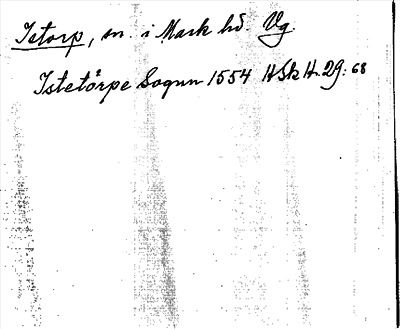 Istorp, sn. i Mark hd. Vg.
Istetörpe Sognn 1554 HSkH. 29: 68